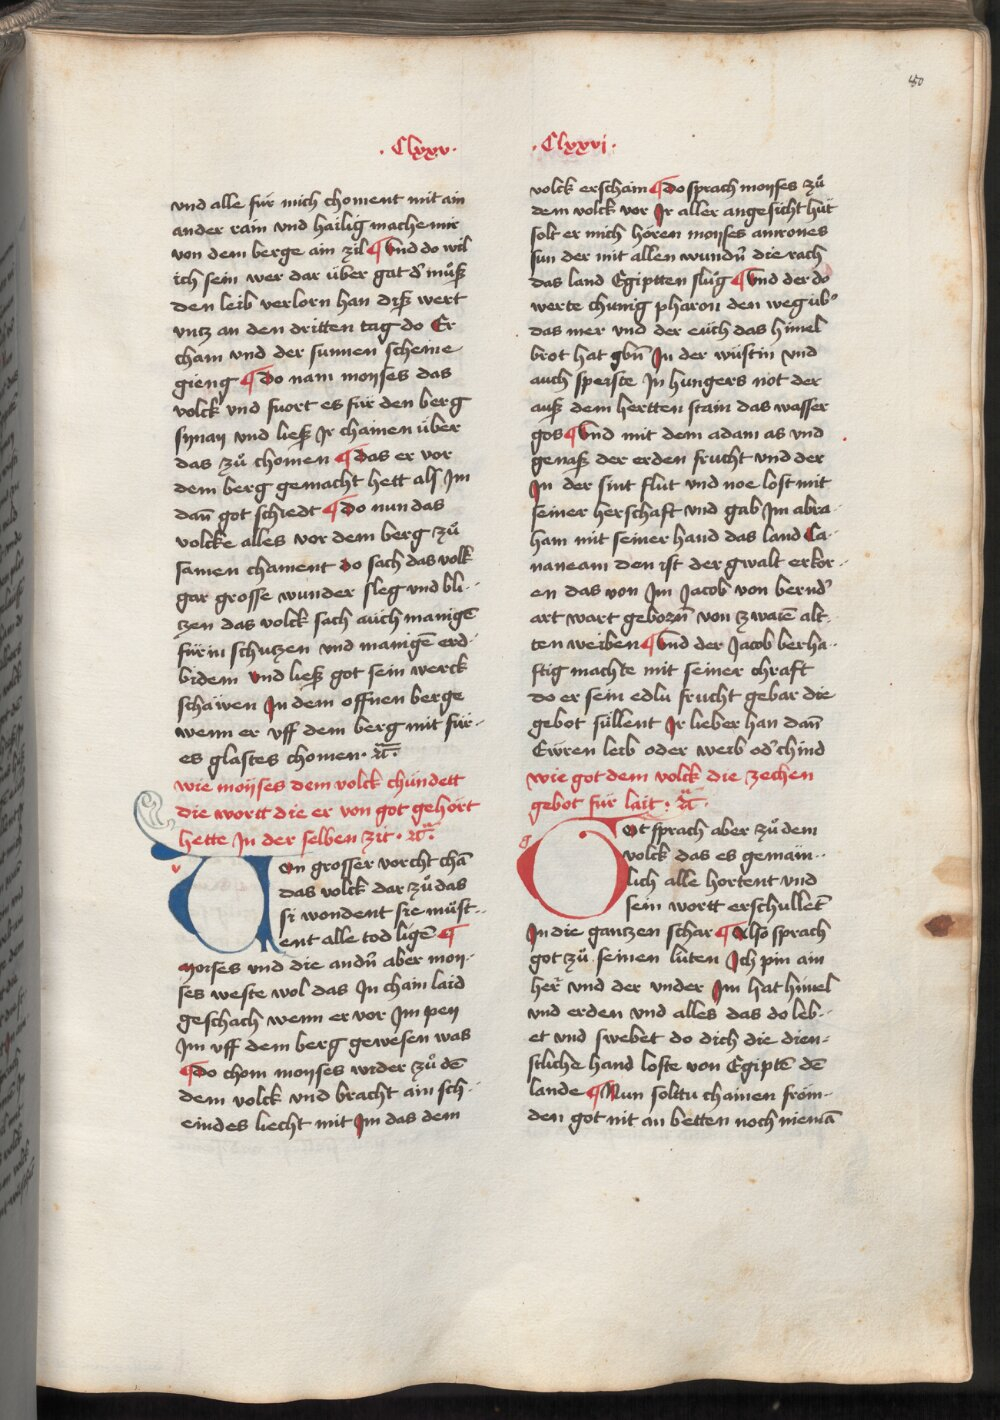 450
· Clxxv ·
vnd alle für mich choment mit ain
ander rain vnd hailig mache mir
von dem berge ain zil ¶ Vnd do wil
ich sein wer dar über gat d' muͦß
den leib verlorn han diß wert
vntz an den dritten tag do Er
cham vnd der sunnen scheine
gieng ¶ Do nam moyses das
volck vnd fuort es für den berg
synay vnd ließ Jr chainen über
das zuͦ chomen ¶ Das er vor
dem berg gemacht hett als Jm
dan̄ got schiedt ¶ Do nun das
volcke alles vor dem berg zuͦ
samen chament do sach das volk
gar grosse wunder sleg vnd bli-
tzen das volck sach auch manigē
fürin schutzen vnd manigē erd-
bidem vnd ließ got sein werck
schäwen Jn dem offnen berge
wenn er vff dem berg mit für-
es glastes chomen ·
wie moyses dem volck chündett
die wortt die er von got gehört
hette Jn der selben zit ·
Von grosser vorcht chā
das volck dar zuͦ das
si wondent sie müst-
ent alle tod ligē ¶
Moises vnd die andn̄ aber moy-
ses weste wol das Jn chain laid
geschach wenn er vor Jm pey
Jm vff dem berg gewesen was
¶ Do chom moyses wider zuͦ dē
dem volck vnd bracht ain sch-
eindes liecht mit Jm das dem
· Clxxvi ·
volck erschain ¶ Do sprach moyses zuͦ
dem volck vor Jr aller angesicht hüt
solt er mich hören moyses anrones
sun der mit allen wundn̄ die rach
das land Egiptten slug ¶ Vnd der do
werte chunig pharon den weg üb'
das mer vnd der euch das himel
brot hat gbn̄ Jn der wüstin vnd
auch speiste Jn hungers not der
auß dem hertten stain das wasser
gos ¶ Vnd mit dem adam as vnd
genaß der erden frucht vnd der
Jn der sint flut vnd noe lost mit
seiner herschaft vnd gab Jm abra-
ham mit seiner hand das land Ca-
naneam den ist der gwalt erkor-
en das von Jm Jacob von bernd'
art wart geborn̄ von zwaiē alt-
ten weiben ¶ Vnd der Jacob berha-
ftig machte mit seiner chraft
do er sein edlu frucht gebar die
gebot süllent Jr lieber han dan̄
Ewren leib oder weib od' chind
wie got dem volck die zechen
gebot für lait ·
Got sprach aber zuͦ dem
volck das es gemain-
lich alle hortent vnd
sein wortt erschulletē
Jn die gantzen schar ¶ Also sprach
got zuͦ seinen lüten Jch pin ain
her vnd der vnder Jm hat himel
vnd erden vnd alles das do leb-
et vnd swebet do dich die dien-
stliche hand loste von Egiptē dē
lande ¶ Nun solttu chainen fröm-
den got nit an betten noch niemā